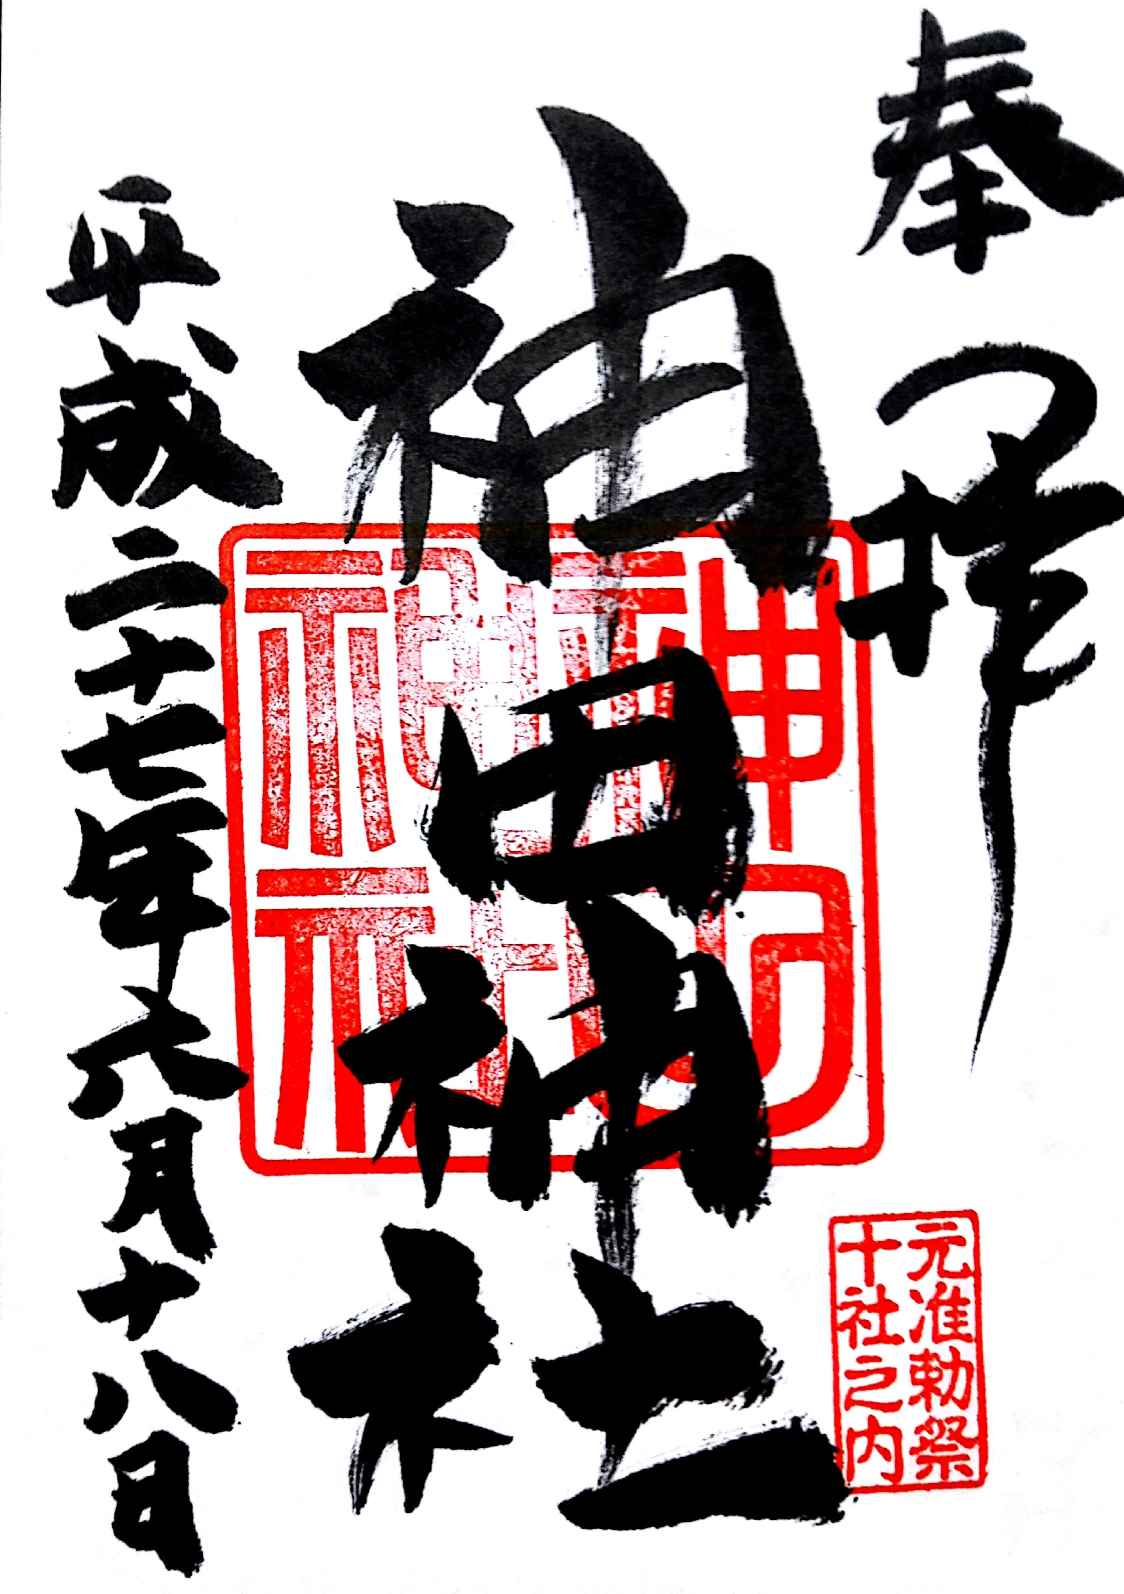 奉拝
神田神社
平成二十七年六月十八日
元准勅祭
十社之内